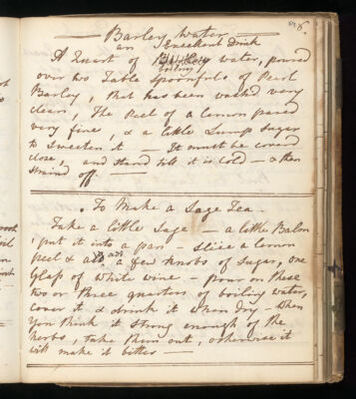 Barley Water
an Excellent Drink
A Quart of boiling water, poured
over two Table Spoonfuls of Pearl
Barley, that has been washed very
clean, The Peel of a lemon pared
very fine, & a little Lump Sugar
to Sweeten it — It must be coverd
close, and stand till it is cold — & then
straind off —
To Make a Sage Tea
Take a little Sage — a little Balm
put it into a pan — Slice a lemon
peel & all a few knobs of Sugar, one
Glass of White wine — pour on these
two or three quarters of boiling water,
cover it & drink it when Dry — When
You think it Strong enough of the
herbs, take them out, otherwise it
will make it bitter —